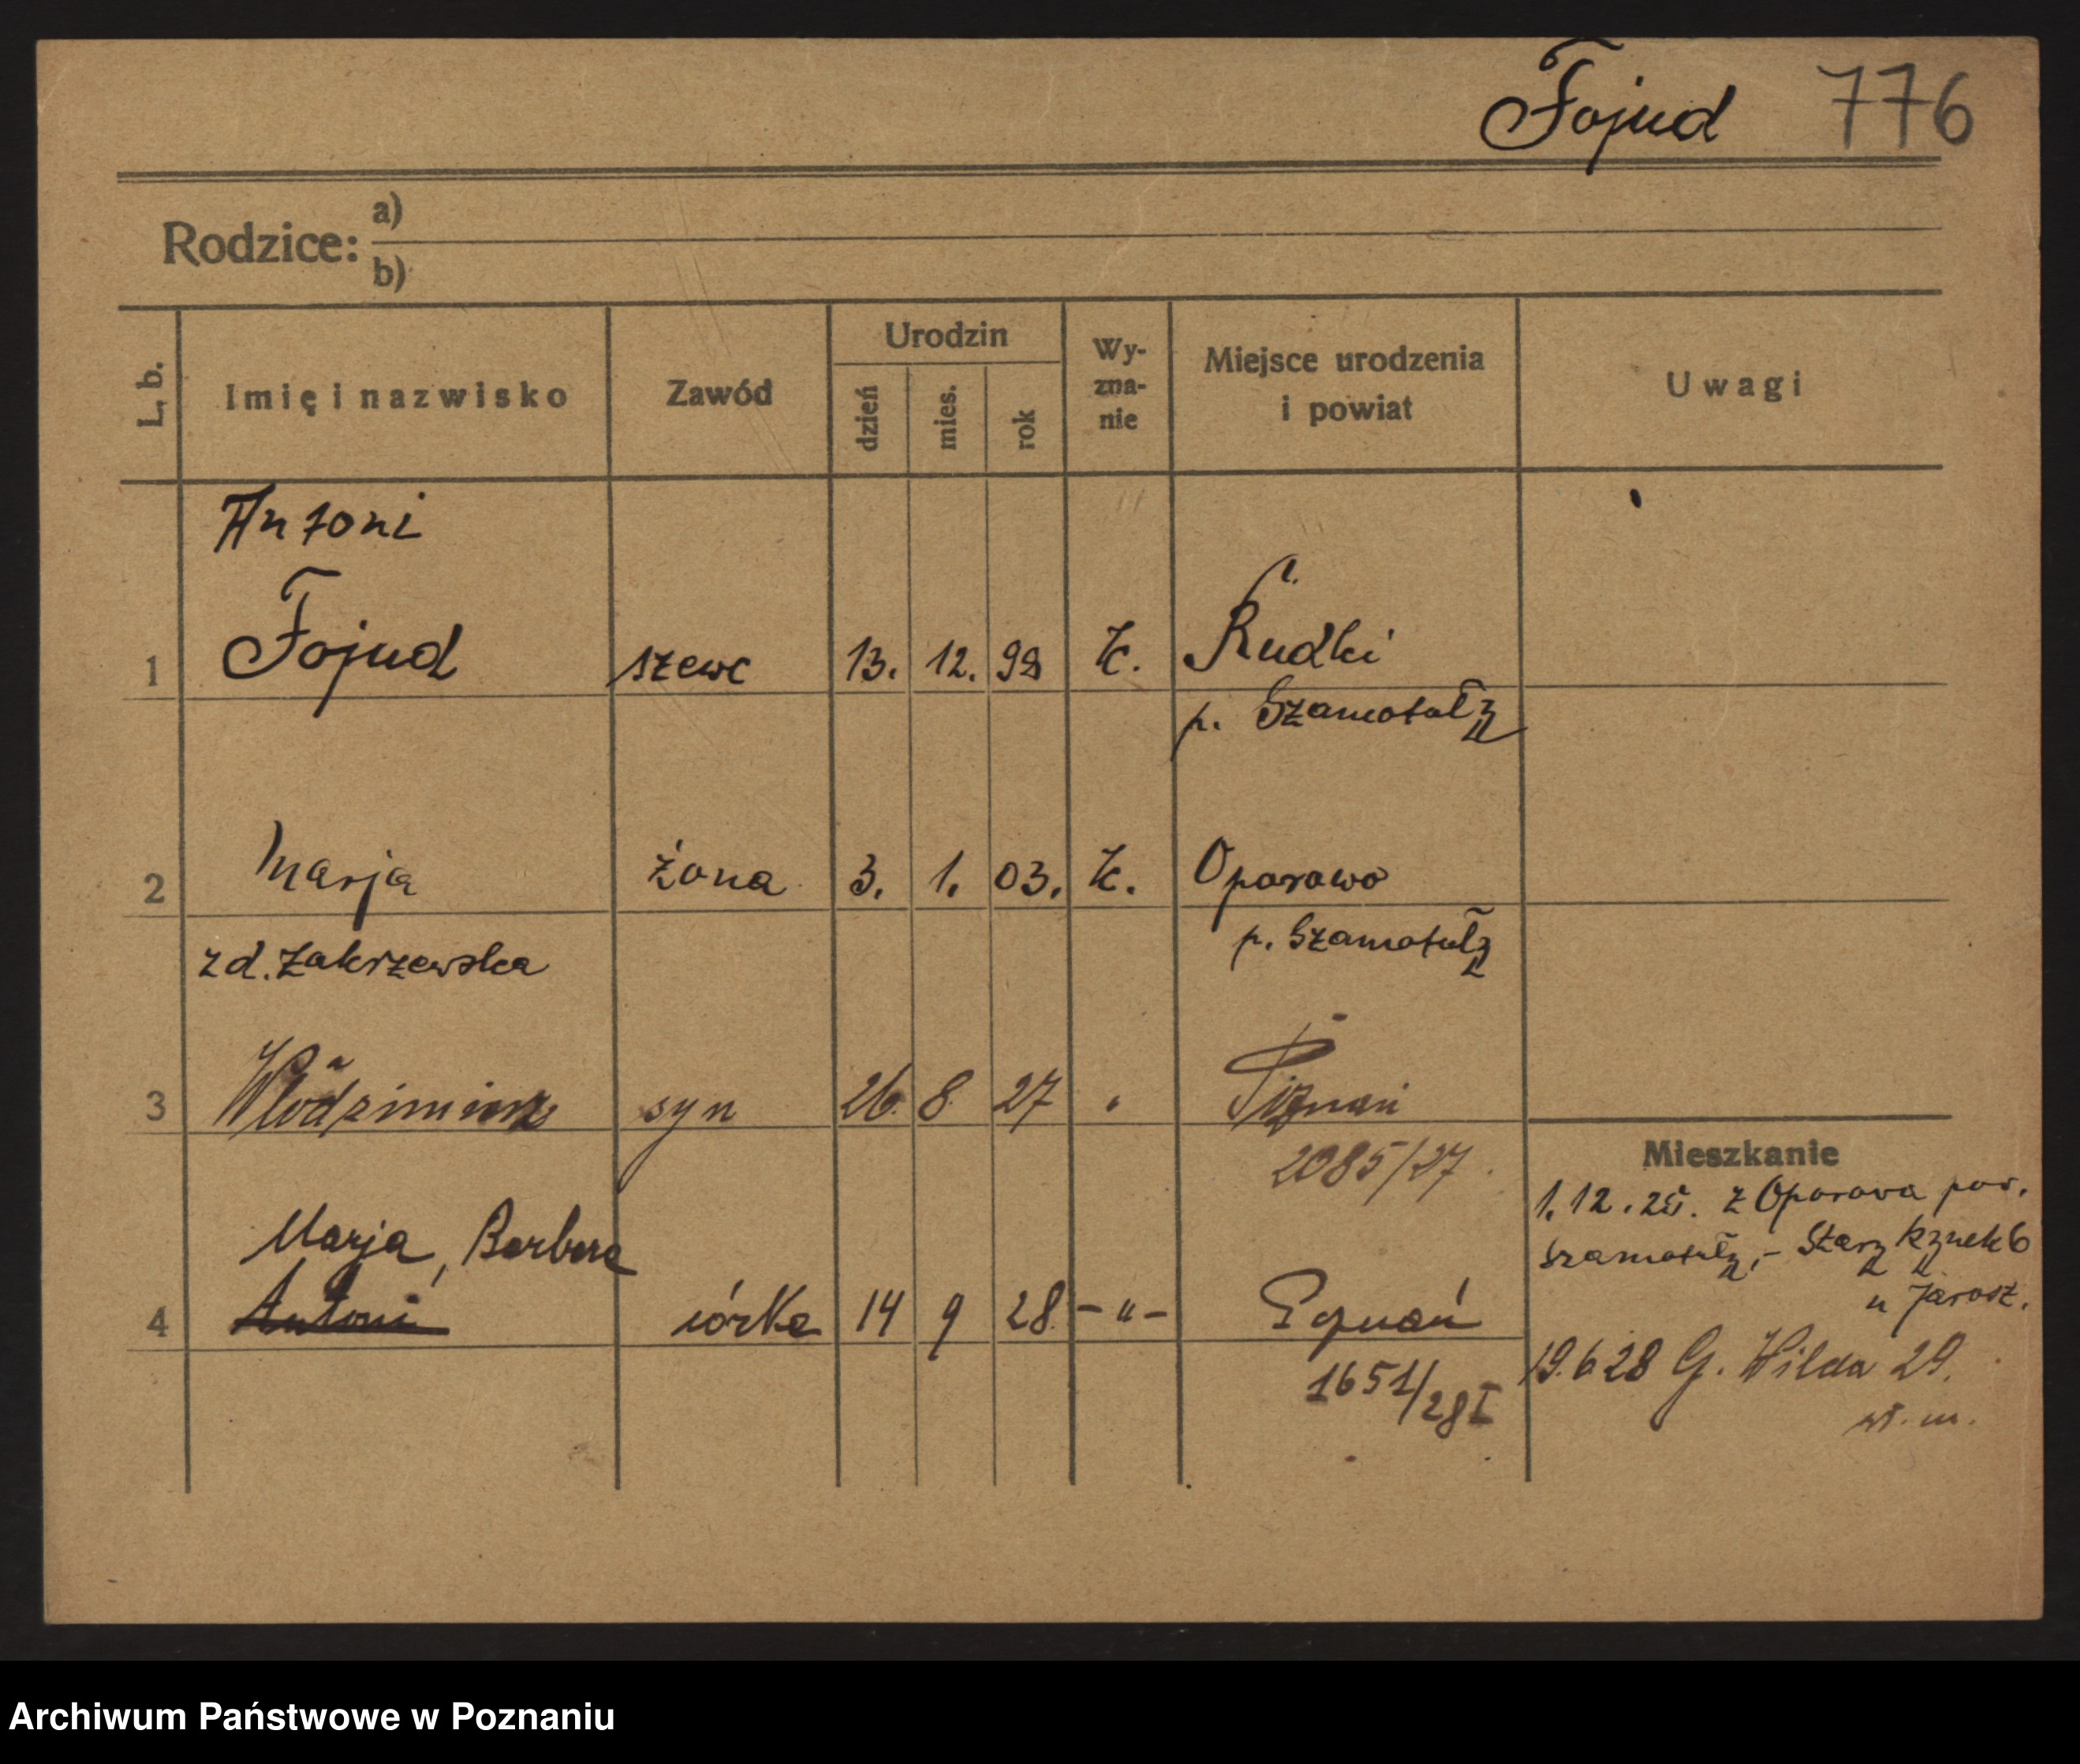 Fojud 776
Rodzice: a)
b)
L. b. Imię i nazwisko Zawód Urodzin dzień mies. rok Wy-zna-nie Miejsce urodzenia i powiat Uwagi
Antoni
1 Fojud szewc 13. 12. 98 k. Rudki
p. Szamotuły
2 Marja żona 3. 1. 03. k. Oporowo
zd. Zakrzewska p. Szamotuły
3 Włodzimierz syn 26. 8. 27 " Poznań
2085/27
Marja, Barbara
4 Antoni córka 14 9 28 -"- Poznań
1651/28 I
Mieszkanie
1.12.25. z Oporowa pow.
Szamotuły, - Stary Rynek 6
u Jarosz.
19.6 28 G. Wilda 29.
wł. m.
Archiwum Państwowe w Poznaniu